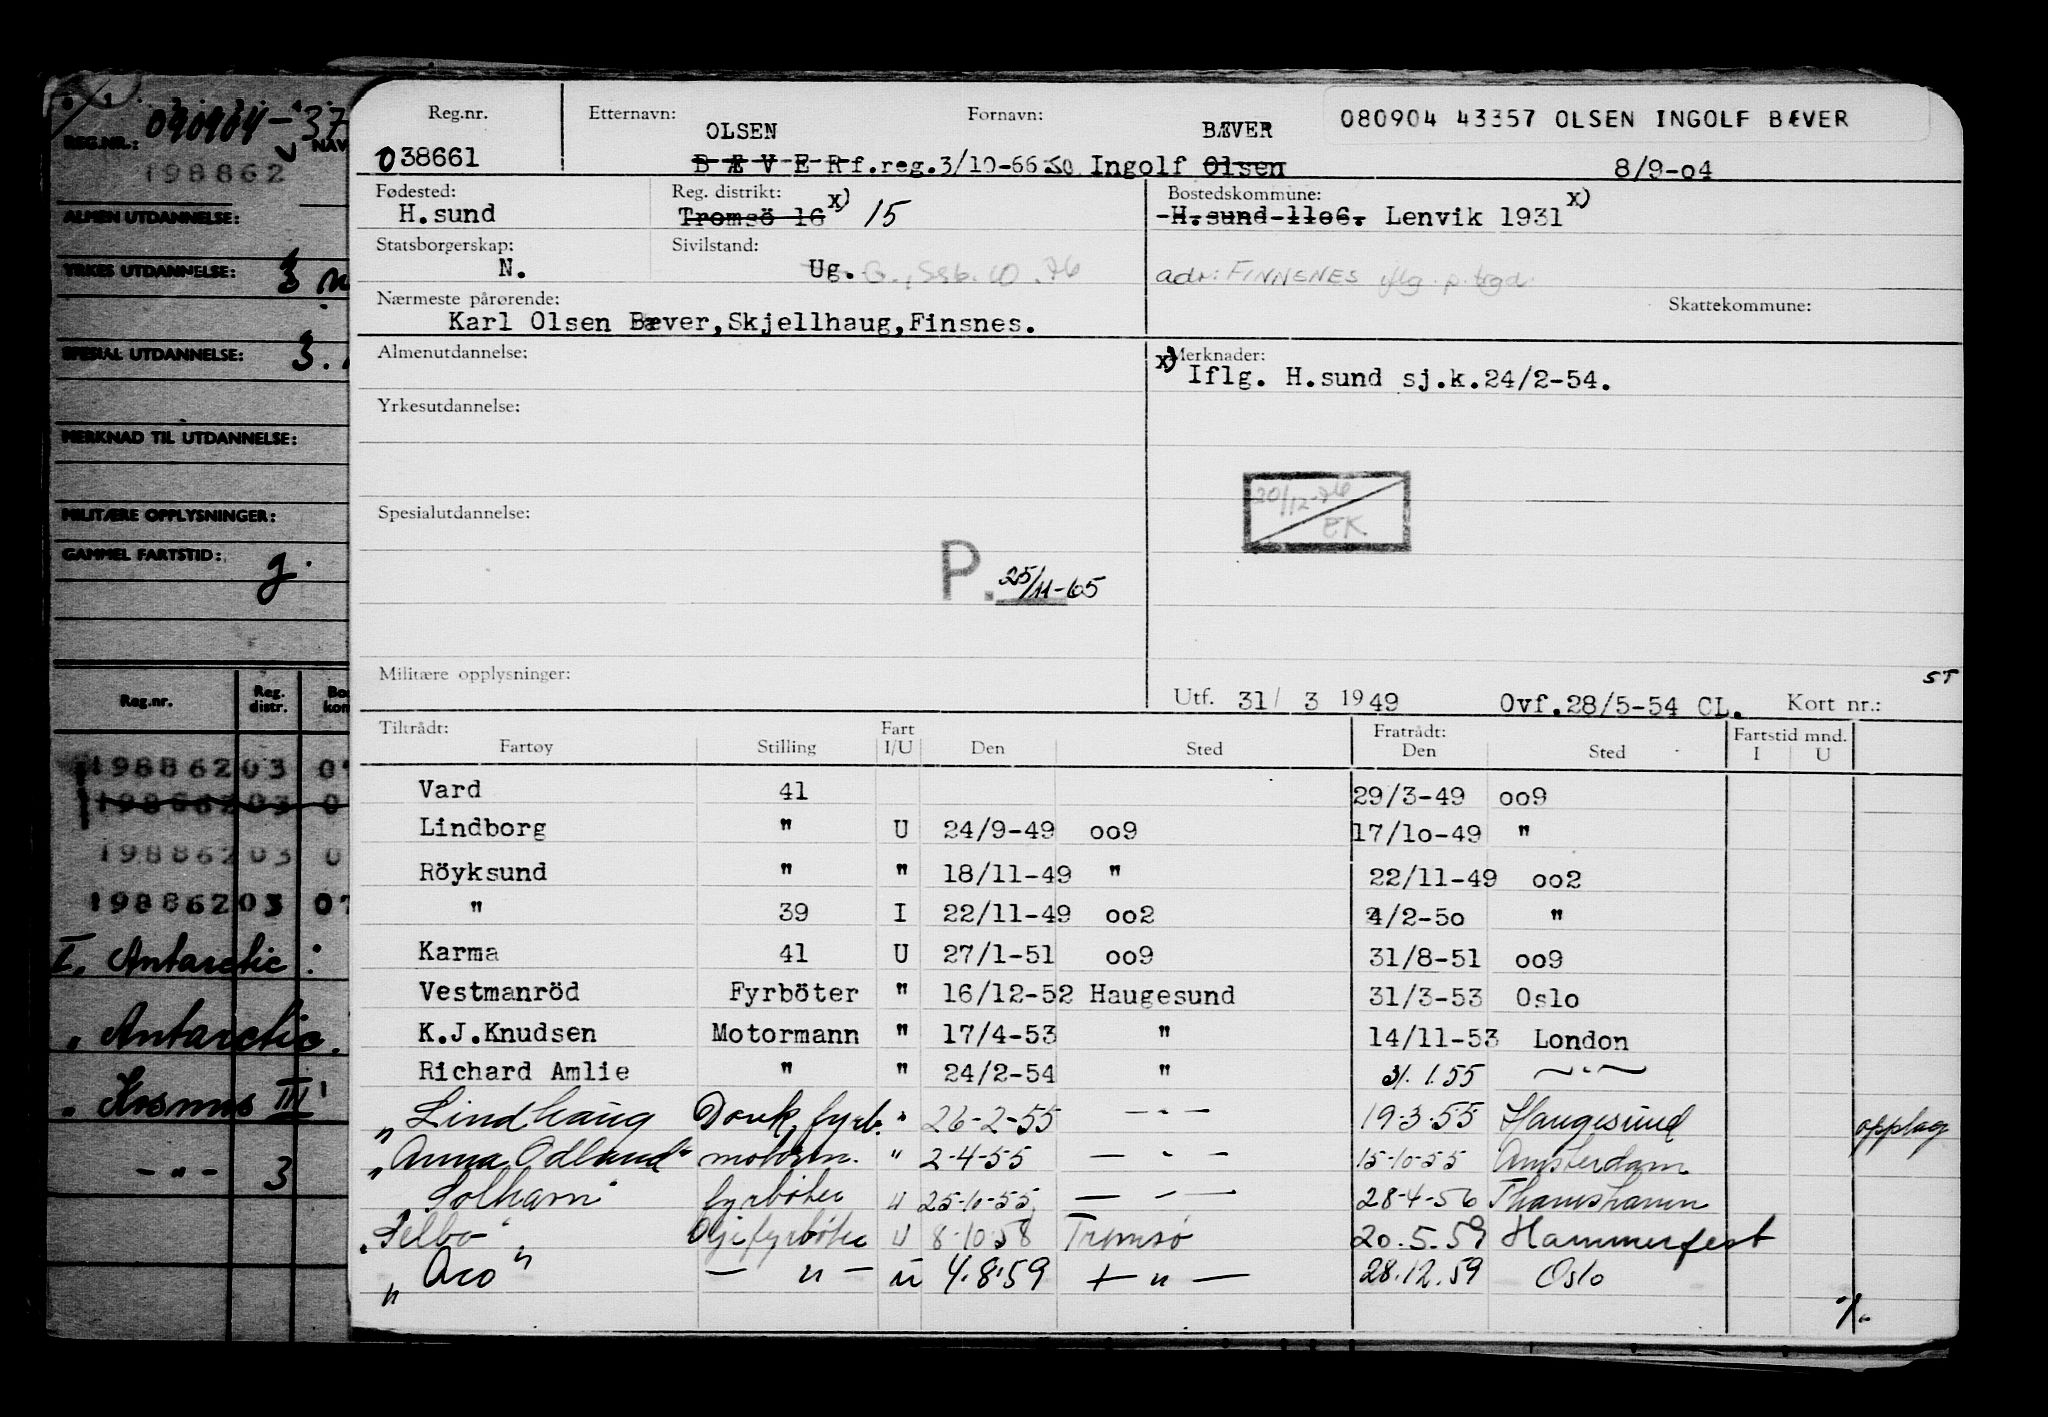 Reg.nr. Etternavn: Fornavn: 080904 43357 OLSEN INGOLF BÆVER
OLSEN BÆVER
038661 B Æ V E R f.reg.3/10-66 Ingolf Olsen 8/9-o4
Fødested: Reg. distrikt: Bostedskommune:
H.sund Tromsö 16 x) 15 H.sund 11o6. Lenvik 1931 x)
Statsborgerskap: Sivilstand:
N. Ug. adr: FINNSNES iflg. p.
Nærmeste pårørende: Skattekommune:
Karl Olsen Bæver,Skjellhaug,Finsnes.
Almenutdannelse: x) Merknader:
Iflg. H.sund sj.k.24/2-54.
Yrkesutdannelse:
20/12-76
EK
Spesialutdannelse:
P. 25/11-65
Militære opplysninger: ST
Utf. 31/ 3 1949 Ovf.28/5-54 CL. Kort nr.:
Tiltrådt: Fart Fratrådt: Fartstid mnd.
Fartøy Stilling I/U Den Sted Den Sted I U
Vard 41 29/3-49 oo9
Lindborg " U 24/9-49 oo9 17/1o-49 "
Röyksund " " 18/11-49 " 22/11-49 oo2
" 39 I 22/11-49 oo2 4/2-5o "
Karma 41 U 27/1-51 oo9 31/8-51 oo9
Vestmanröd Fyrböter " 16/12-52 Haugesund 31/3-53 Oslo
K.J.Knudsen Motormann " 17/4-53 " 14/11-53 London
Richard Amlie " " 24/2-54 " 31.1.55 — " —
"Lindhaug Donk. fyrb. " 26-2-55 — " — 19.3.55 Haugesund opplag
"Anna Odland" motorm. " 2-4-55 — " — 15-10-55 Amsterdam
"Solhavn" fyrbøter u 25-10-55 — " — 28-4-56 Thamshavn
"Selbo" Oljefyrbøter U 8-10-58 Tromsø 20.5.59 Hammerfest
"Aco" — u — u 4.8.59 — u — 28.12.59 Oslo
%.
REG.NR.: 090904-37 NAV
198862
ALMEN UTDANNELSE:
YRKES UTDANNELSE: 3
SPESIAL UTDANNELSE: 3.
MERKNAD TIL UTDANNELSE:
MILITÆRE OPPLYSNINGER:
GAMMEL FARTSTID: g.
Reg.nr. Reg. distr. Bo kom
198862 03 0
198862 03 0
198862 03 0
198862 03 07
I. Antarctic
" Antarctic.
" Kosmos III
— " — 3